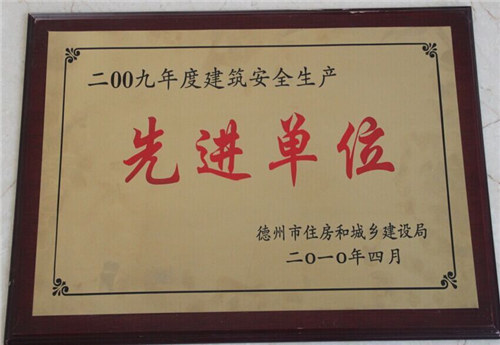 二00九年度建筑安全生产
先进单位
德州市住房和城乡建设局
二0一0年四月